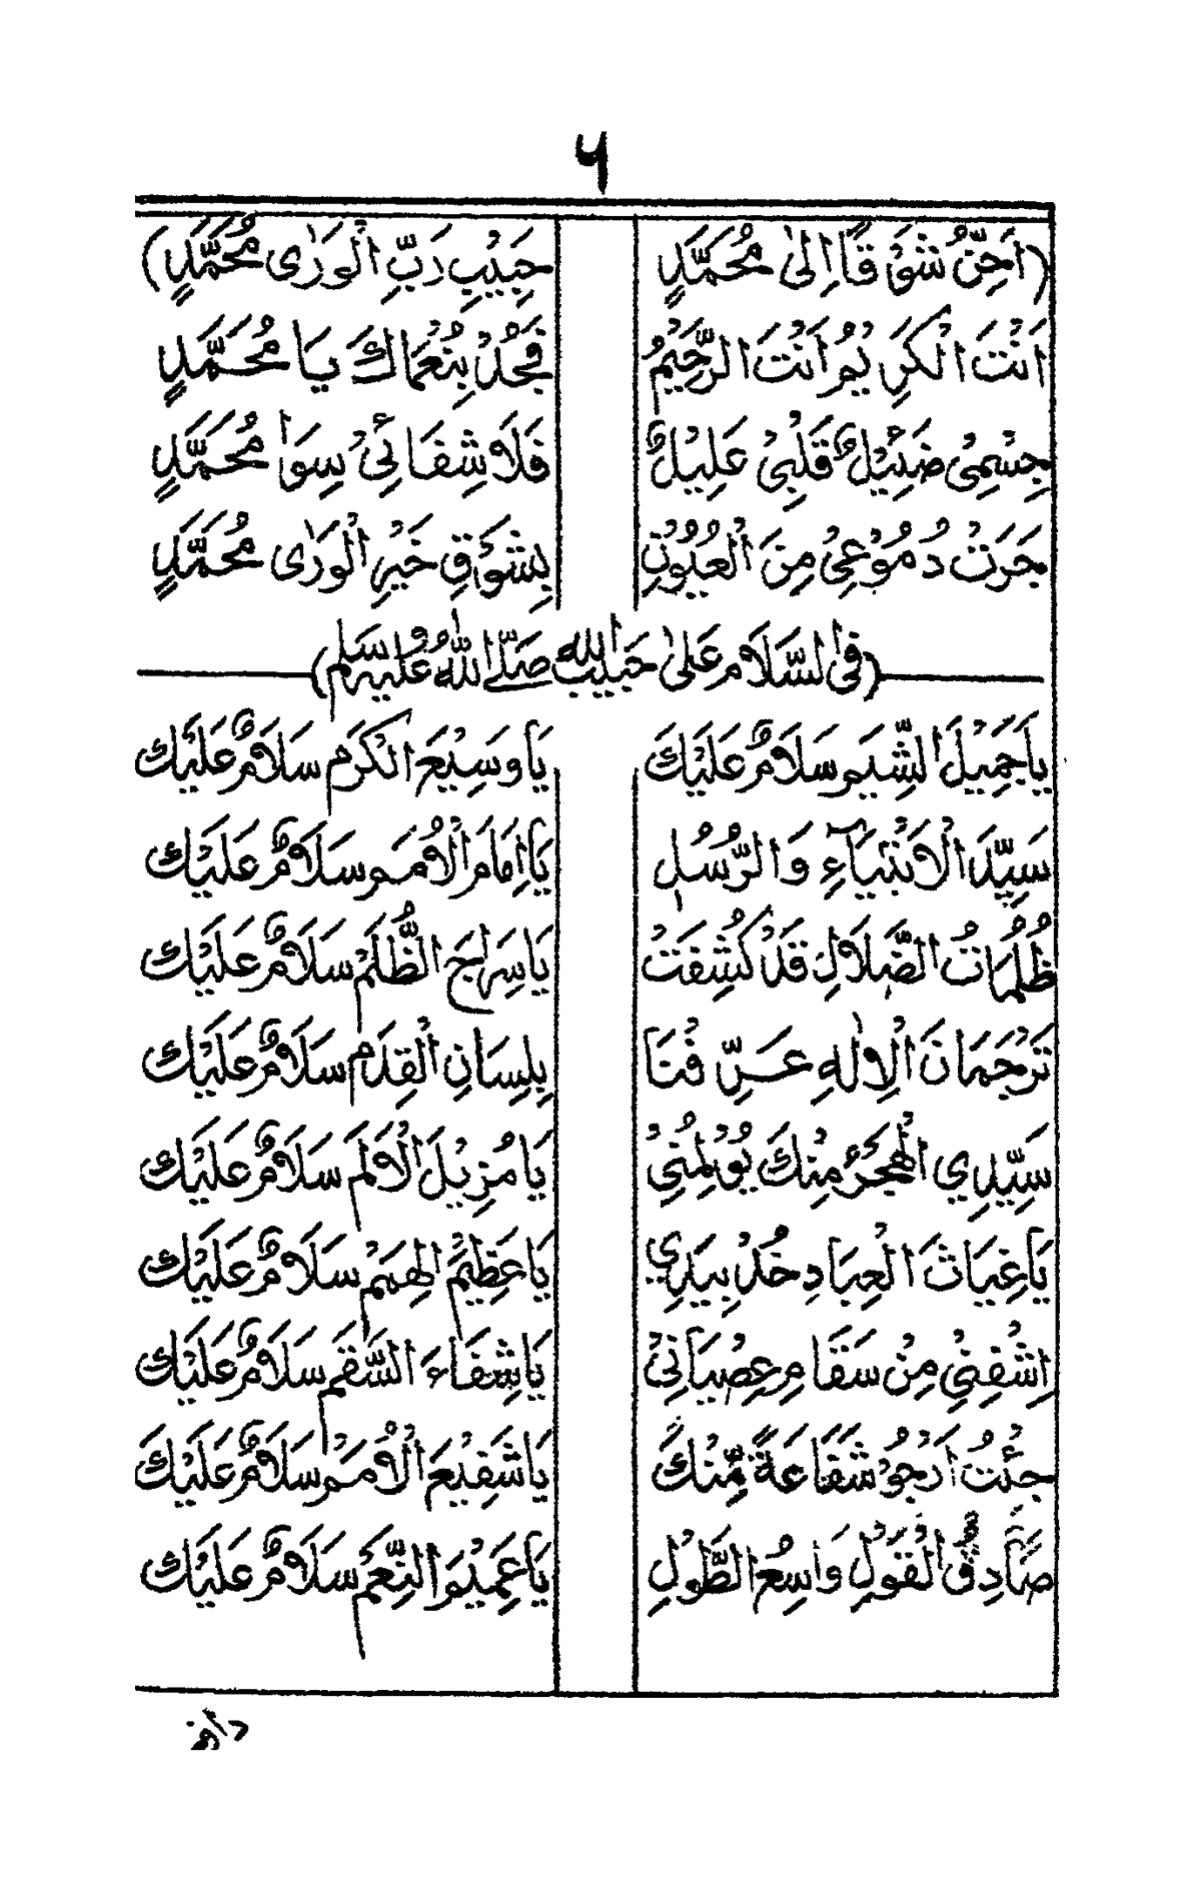 ٦
(اَحِنُّ شَوْقًا اِلٰى مُحَمَّدٍ حَبِيْبِ رَبِّ الْوَرٰى مُحَمَّدٍ)
اَنْتَ الْكَرِيْمُ اَنْتَ الرَّحِيْمُ فَجُدْ بِنُعْمَاكَ يَا مُحَمَّدٍ
جِسْمِىْ ضَئِيْلٌ قَلْبِىْ عَلِيْلٌ فَلَا شِفَائِىْ سِوَا مُحَمَّدٍ
جَرَتْ دُمُوْعِىْ مِنَ الْعُيُوْنِ بِشَوْقِ خَيْرِ الْوَرٰى مُحَمَّدٍ
(فى السَّلَام عَلىٰ حَبيب الله صَلَّے اللّٰهُ عليه وسَلم)
يَا جَمِيْلَ الشِّيَم سَلَامٌ عَلَيْكَ يَا وَسِيْعَ الْكَرَم سَلَامٌ عَلَيْكَ
سَيِّدَ الْاَنْبِيَآءِ وَالرُّسُلِ يَا اِمَامَ الْاُمَم سَلَامٌ عَلَيْكَ
ظُلُمَاتُ الضَّلَالِ قَدْ كُشِفَتْ يَا سِرَاجَ الظُّلَم سَلَامٌ عَلَيْكَ
تَرْجُمَانَ الْاِلٰهِ عَزِّ فَتَا بِلِسَانِ الْقِدَم سَلَامٌ عَلَيْكَ
سَيِّدِي الْهَجْرُ مِنْكَ يُوْلِمُنِىْ يَا مُزِيْلَ الْاَلَم سَلَامٌ عَلَيْكَ
يَا غِيَاثَ الْعِبَادِ خُذْ بِيَدِي يَا عَظِيْمَ الْهِمَم سَلَامٌ عَلَيْكَ
اِشْفِنِىْ مِنْ سَقَامِ عِصْيَانِىْ يَا شِفَاءَ السَّقَم سَلَامٌ عَلَيْكَ
جِئْتُ اَرْجُوْ شَفَاعَةً مِّنْكَ يَا شَفِيْعَ الْاُمَم سَلَامٌ عَلَيْكَ
صَادِقُ الْقَوْلِ وَاسِعُ الطَّوْلِ يَا عَمِيْدَ النِّعَم سَلَامٌ عَلَيْكَ